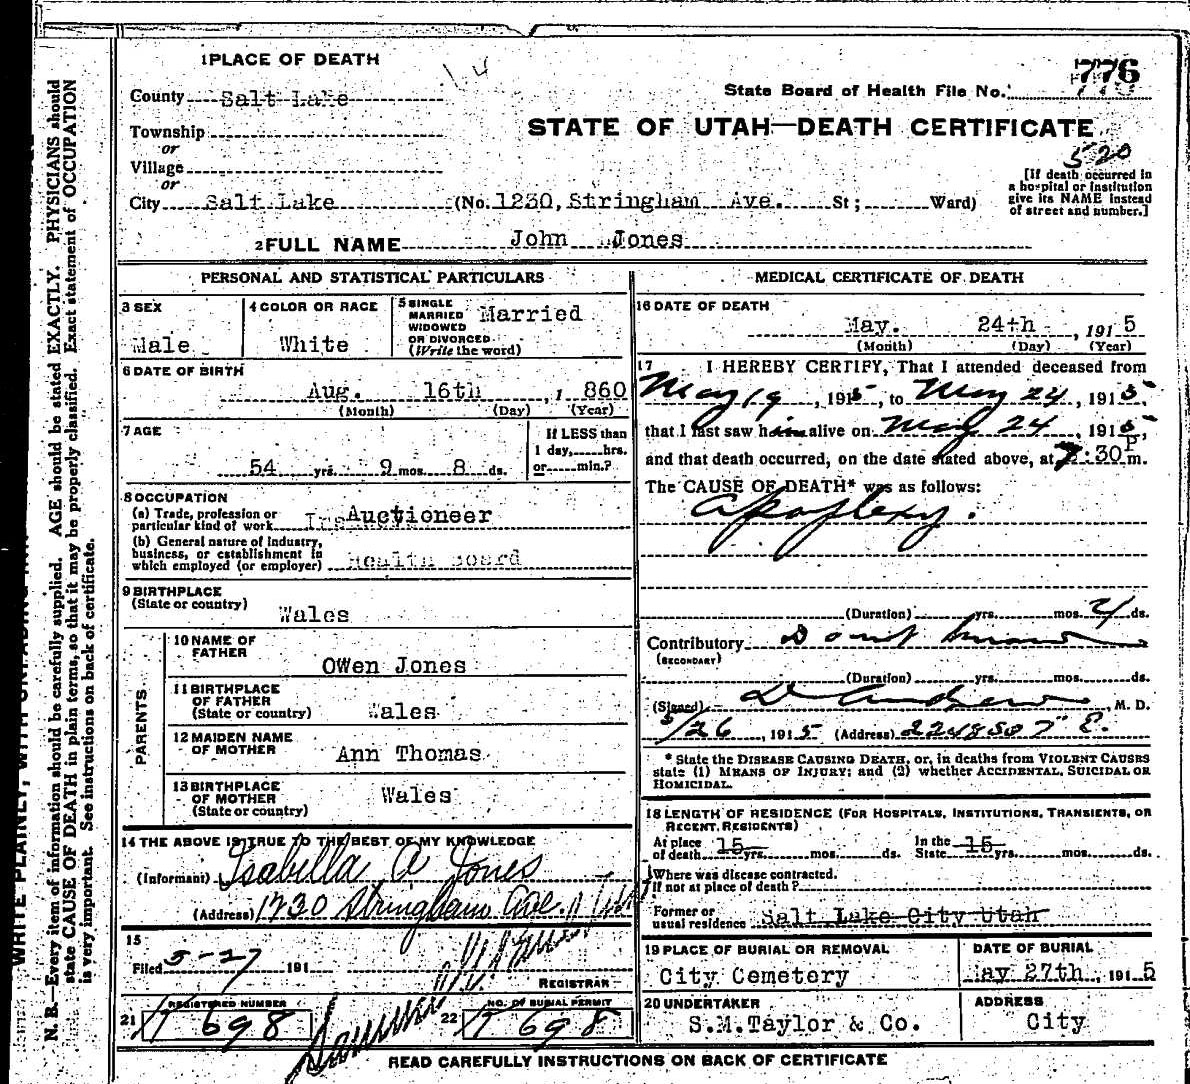 1 PLACE OF DEATH
776
County Salt Lake
State Board of Health File No.
Township
STATE OF UTAH—DEATH CERTIFICATE
or
520
Village
or
[If death occurred in
a hospital or institution
give its NAME instead
of street and number.]
City Salt Lake (No. 1230, Stringham Ave. St; Ward)
2 FULL NAME John Jones
PERSONAL AND STATISTICAL PARTICULARS
3 SEX
Male
4 COLOR OR RACE
White
5 SINGLE
MARRIED
WIDOWED
OR DIVORCED
(Write the word)
Married
6 DATE OF BIRTH
Aug. 16th, 1860
(Month) (Day) (Year)
7 AGE
54 yrs. 9 mos. 8 ds.
If LESS than
1 day, hrs.
or min.?
8 OCCUPATION
(a) Trade, profession or
particular kind of work Auctioneer
(b) General nature of industry,
business, or establishment in
which employed (or employer) Health Board
9 BIRTHPLACE
(State or country)
Wales
PARENTS
10 NAME OF
FATHER
Owen Jones
11 BIRTHPLACE
OF FATHER
(State or country)
Wales
12 MAIDEN NAME
OF MOTHER
Ann Thomas
13 BIRTHPLACE
OF MOTHER
(State or country)
Wales
14 THE ABOVE IS TRUE TO THE BEST OF MY KNOWLEDGE
(Informant) Isabella A Jones
(Address) 1230 Stringham Ave.
15
Filed 5-27 191
REGISTRAR
21 REGISTERED NUMBER
698
22 NO. OF BURIAL PERMIT
698
MEDICAL CERTIFICATE OF DEATH
16 DATE OF DEATH
May. 24th, 1915
(Month) (Day) (Year)
17 I HEREBY CERTIFY, That I attended deceased from
May 19, 1915, to May 24, 1915,
that I last saw him alive on May 24, 1915,
and that death occurred, on the date stated above, at 7:30 P m.
The CAUSE OF DEATH* was as follows:
Apoplexy.
(Duration) yrs. mos. ds.
Contributory Dont know
(SECONDARY)
(Duration) yrs. mos. ds.
(Signed) M. D.
5/26, 1915 (Address)
* State the DISEASE CAUSING DEATH, or, in deaths from VIOLENT CAUSES
state (1) MEANS OF INJURY; and (2) whether ACCIDENTAL, SUICIDAL OR
HOMICIDAL.
18 LENGTH OF RESIDENCE (FOR HOSPITALS, INSTITUTIONS, TRANSIENTS, OR
RECENT RESIDENTS)
At place
of death 15 yrs. mos. ds. In the
State 15 yrs. mos. ds.
Where was disease contracted.
If not at place of death?
Former or
usual residence Salt Lake City Utah
19 PLACE OF BURIAL OR REMOVAL
City Cemetery
DATE OF BURIAL
May 27th, 1915
20 UNDERTAKER
S.M.Taylor & Co.
ADDRESS
City
READ CAREFULLY INSTRUCTIONS ON BACK OF CERTIFICATE
N. B.—Every item of information should be carefully supplied. AGE should be stated EXACTLY. PHYSICIANS should
state CAUSE OF DEATH in plain terms, so that it may be properly classified. Exact statement of OCCUPATION
is very important. See instructions on back of certificate.